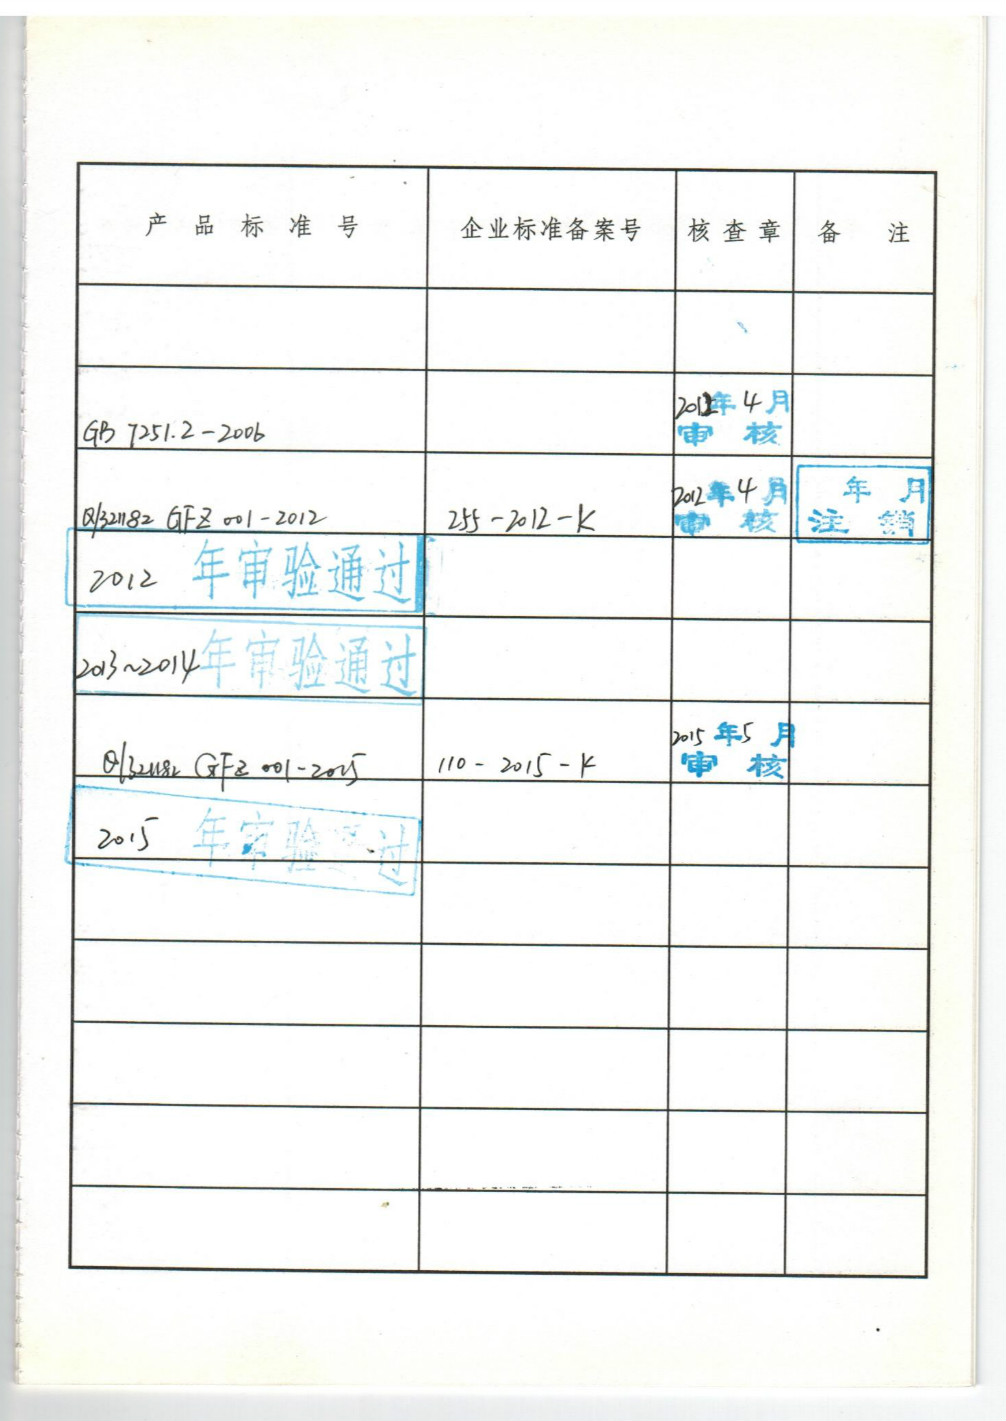 产品标准号 企业标准备案号 核查章 备注
2012年4月
GB 7251.2-2006 审核
2012年4月 年 月
Q/321182 GFZ 001-2012 255-2012-K 审核 注销
2012 年审验通过
2013~2014年审验通过
2015年5月
Q/321182 GFZ 001-2015 110-2015-K 审核
2015 年审验通过